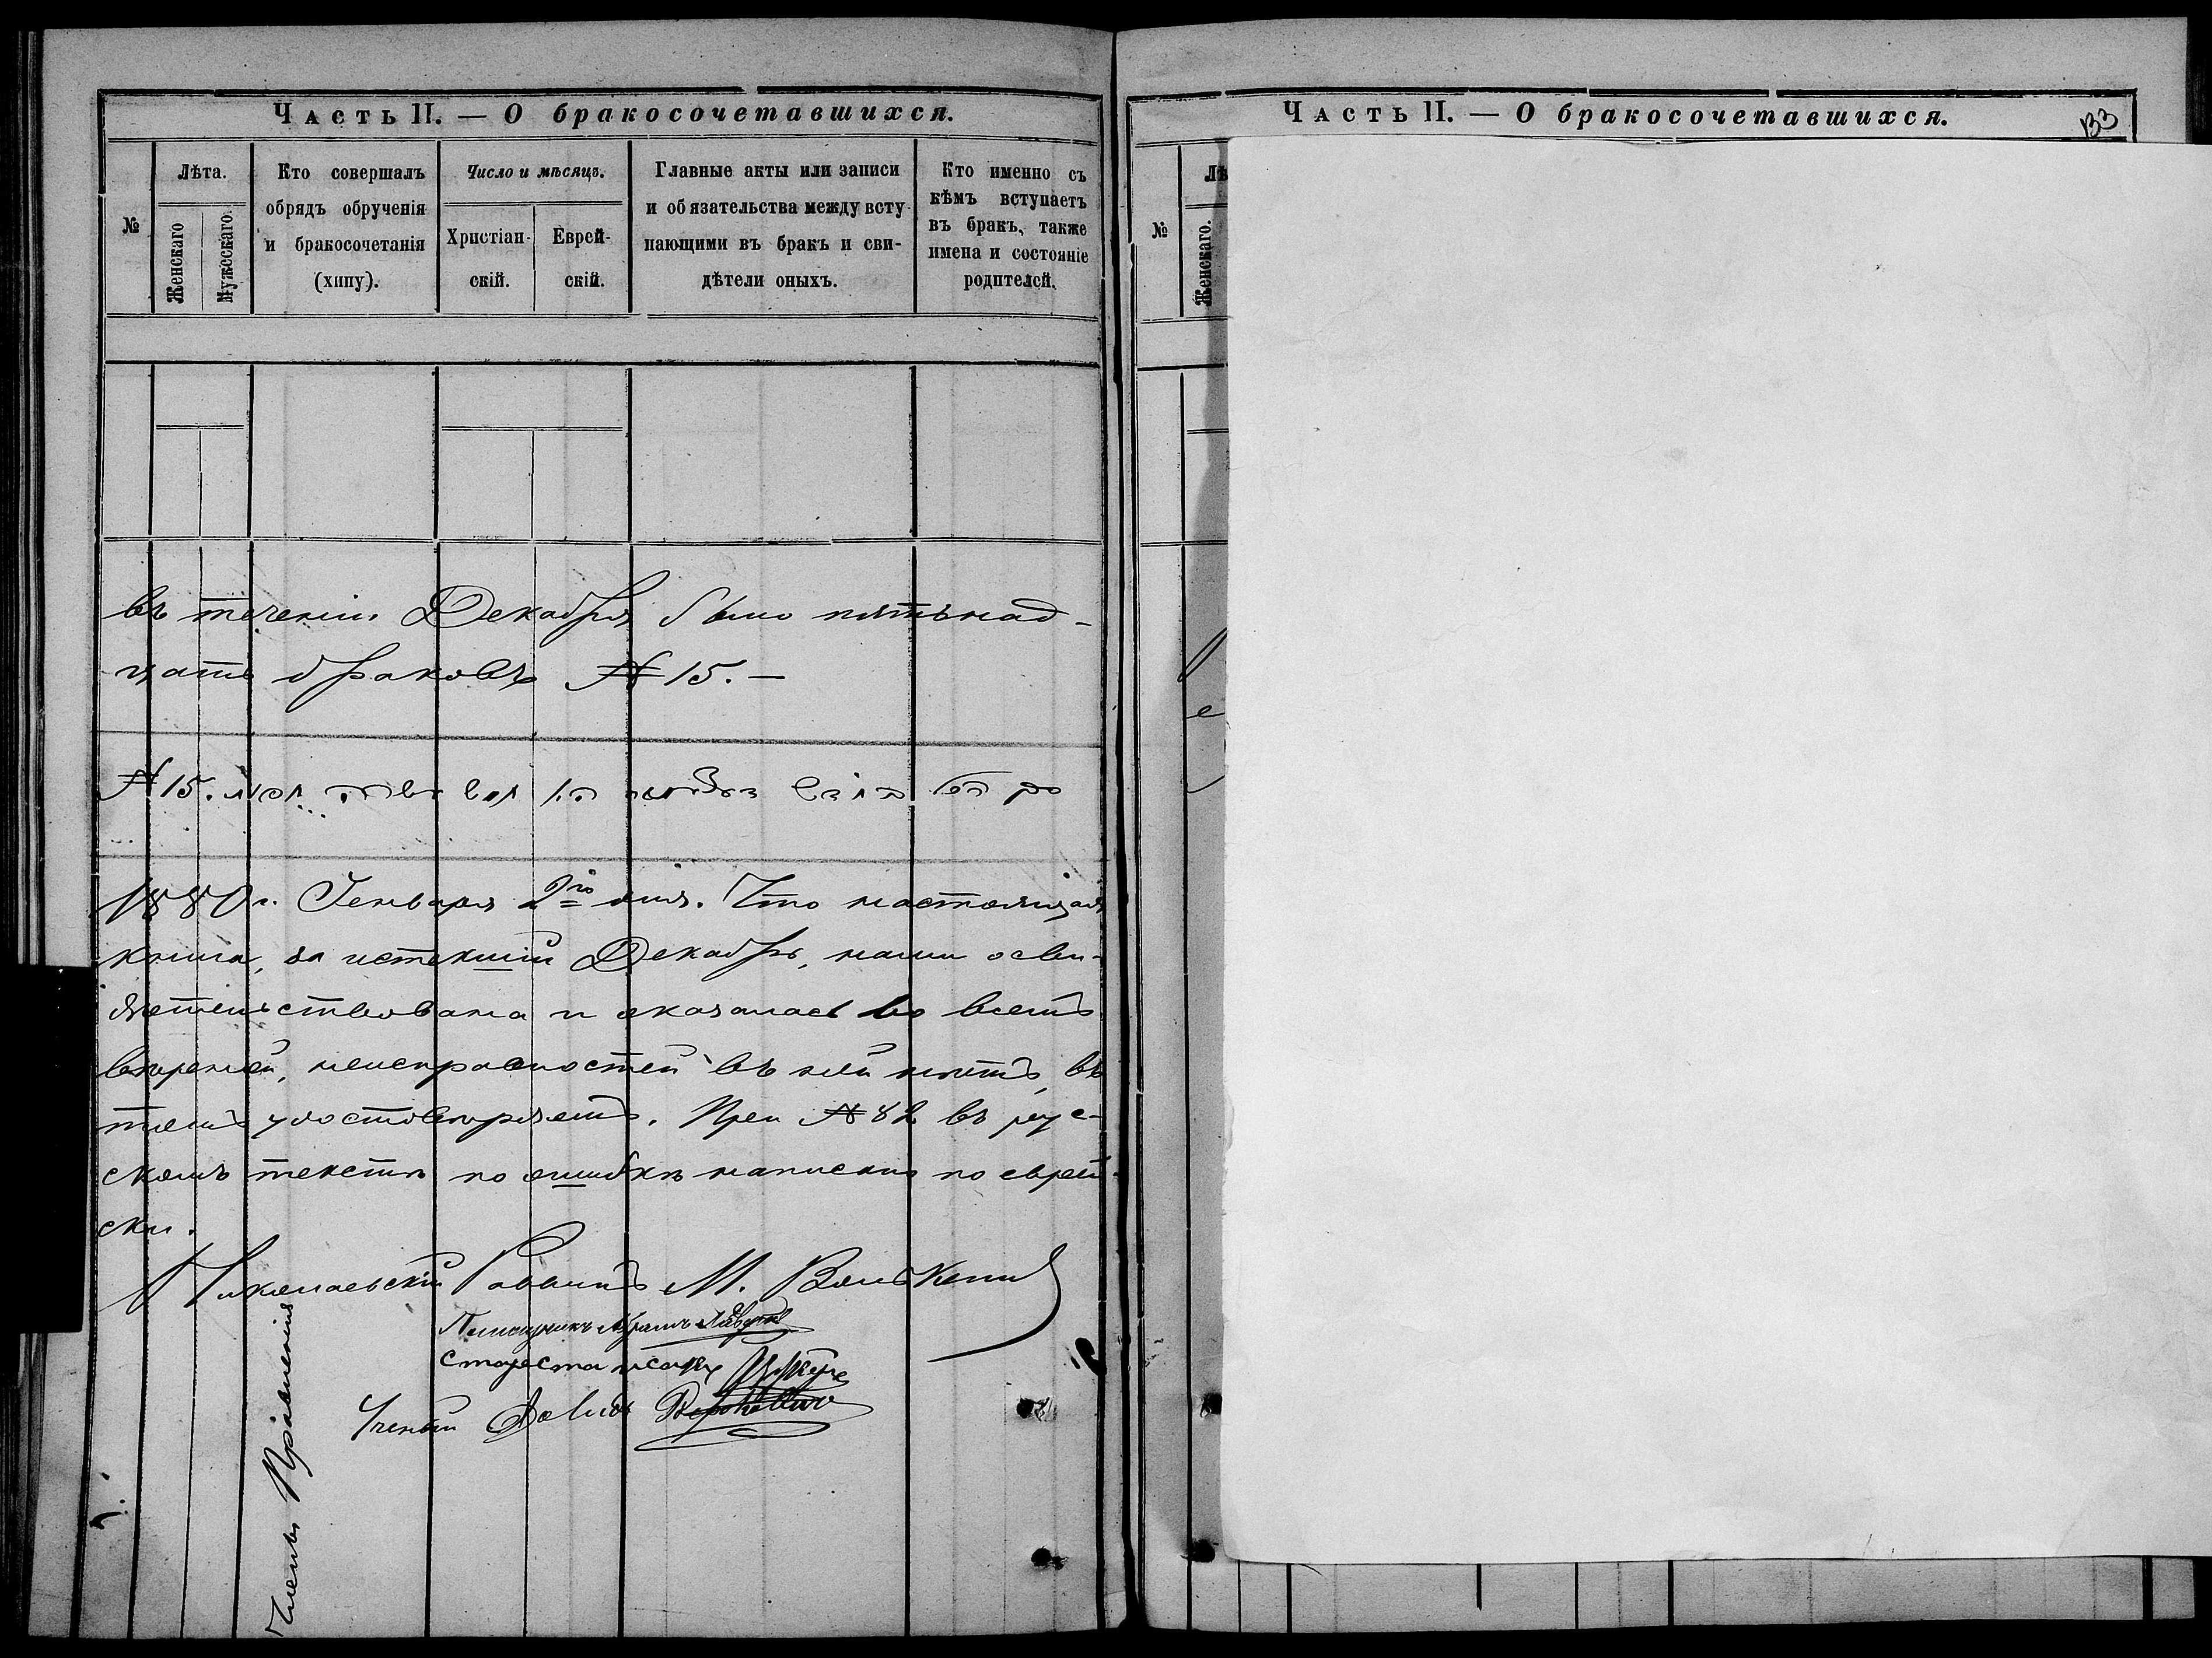 Часть II. — О бракосочетавшихся.
№
Лѣта.
Женскаго
Мужескаго.
Кто совершалъ
обрядъ обрученія
и бракосочетанія
(хипу).
Число и мѣсяцъ.
Христіан-
скій.
Еврей-
скій.
Главные акты или записи
и обязательства между всту-
пающими въ бракъ и сви-
дѣтели оныхъ.
Кто именно съ
кѣмъ вступаетъ
въ бракъ, также
имена и состояніе
родителей.
въ теченіи Декабря было пятьнад-
цать браковъ № 15. —
№ 15.
1880 г. Генваря 2го дня. Что настоящая
книга, за истекшій Декабрь, нами осви-
дѣтельствована и оказалась во всемъ
вѣрной, неисправностей въ ней нѣтъ, въ
томъ удостовѣряемъ. При № 82 въ рус-
скомъ текстѣ по ошибкѣ написано по еврей-
ски.
Николаевскій Раввинъ М.
Староста
Ученый Давидъ
Члены Правленія
Часть II. — О бракосочетавшихся.
133
№
Лѣ
Женскаго.